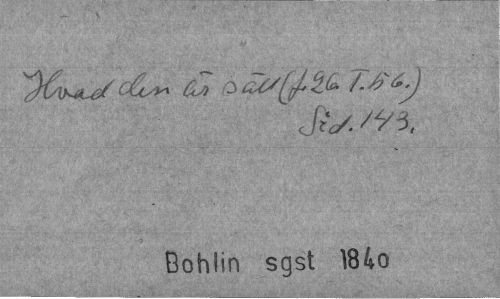 Hvad den är sält (f. 26 T. 56.)
Sid. 143.
Bohlin sgst 1840